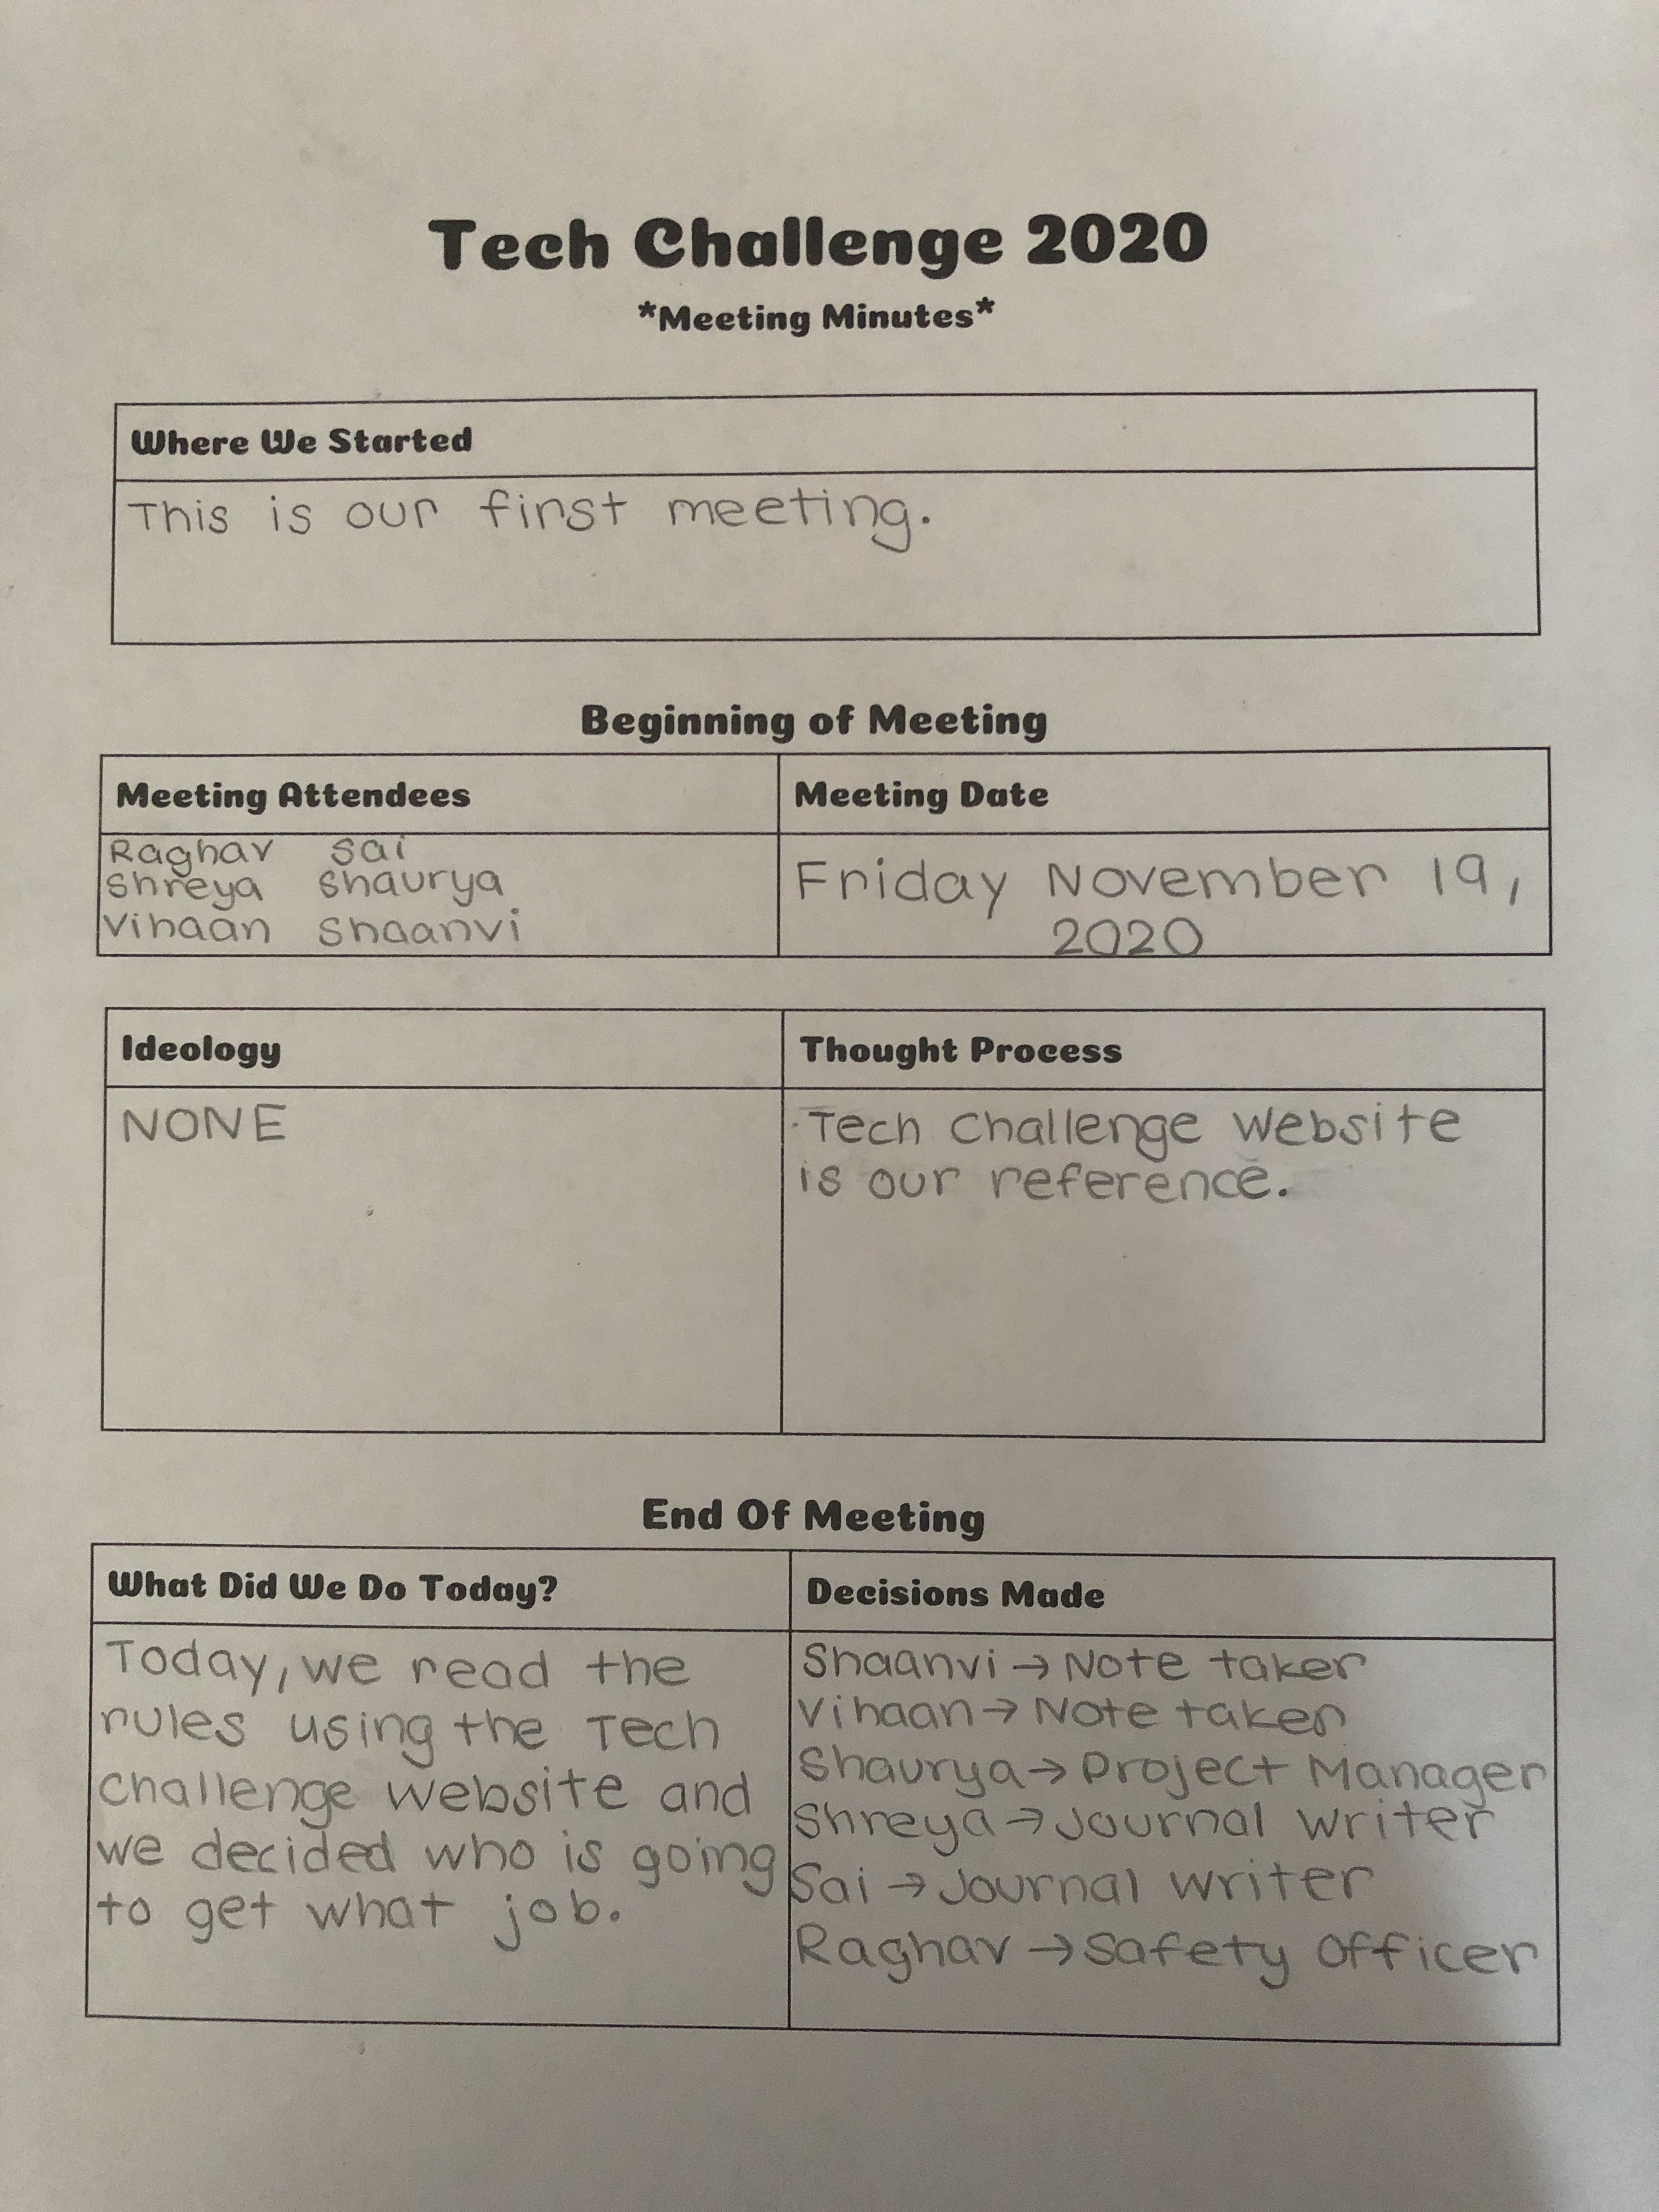 Tech Challenge 2020
*Meeting Minutes*
Where We Started
This is our first meeting.
Beginning of Meeting
Meeting Attendees
Raghav Sai
Shreya Shaurya
Vihaan Shaanvi
Meeting Date
Friday November 19,
2020
Ideology
NONE
Thought Process
Tech Challenge Website
is our reference.
End Of Meeting
What Did We Do Today?
Today, we read the
rules using the Tech
Challenge Website and
we decided who is going
to get what job.
Decisions Made
Shaanvi → Note taker
Vihaan → Note taker
Shaurya → Project Manager
Shreya → Journal Writer
Sai → Journal Writer
Raghav → Safety Officer